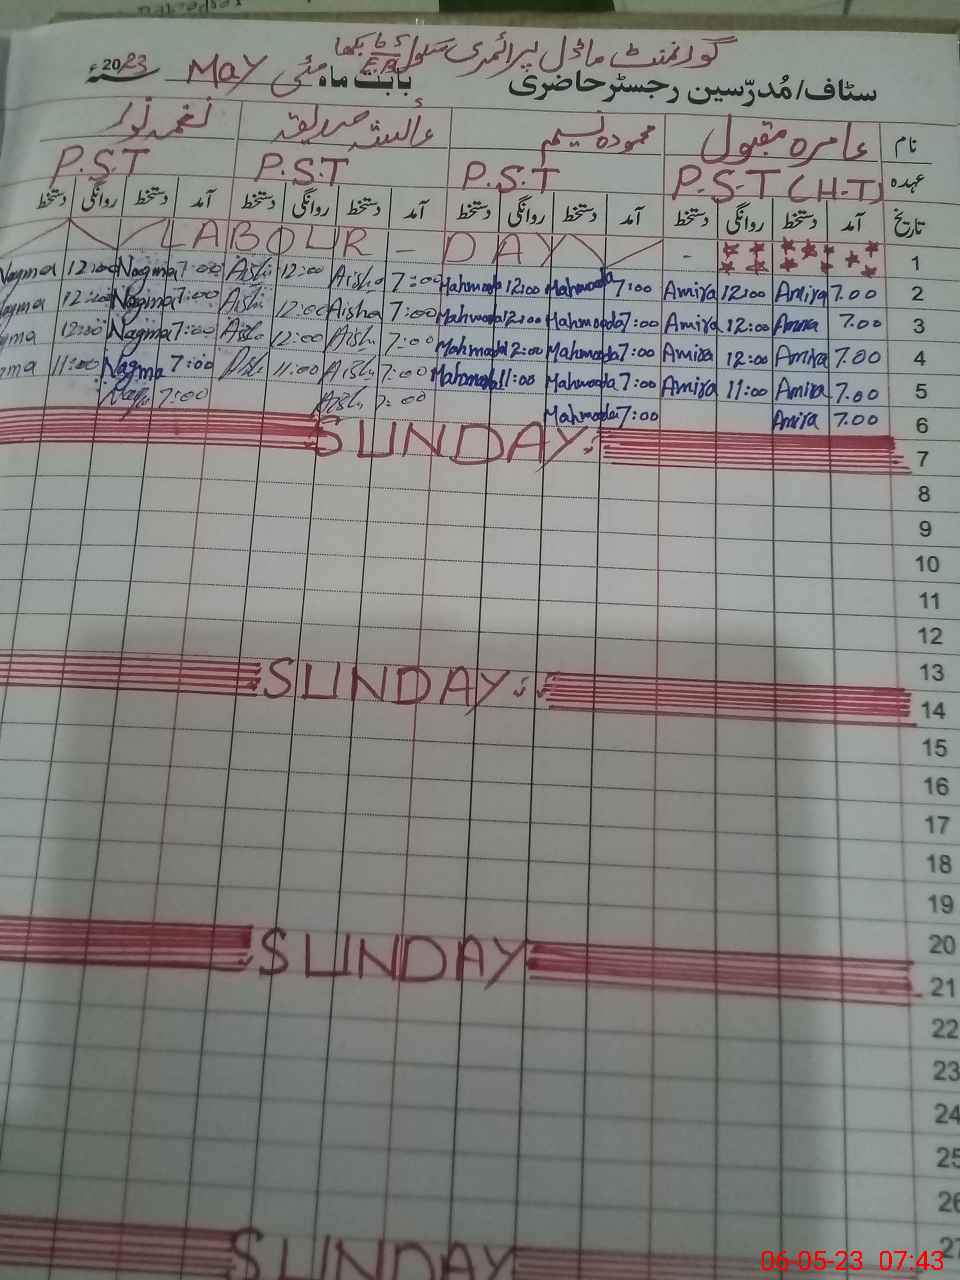 گورنمنٹ ماڈل پرائمری سکول
سٹاف/مُدرّسین رجسٹر حاضری بابت ماہ مئی MAY سنہ 2023ء
نام عامرہ مقبول محمودہ نسیم عائشہ صدیقہ نغمہ نور
عہدہ P.S.T (H.T) P.S.T P.S.T P.S.T
تاریخ آمد دستخط روانگی دستخط آمد دستخط روانگی دستخط آمد دستخط روانگی دستخط آمد دستخط روانگی دستخط
LABOUR - DAY - 1
Nagma 12:00 Nagma 7:00 Aisha 12:00 Aisha 7:00 Mahmooda 12:00 Mahmooda 7:00 Amira 12:00 Amira 7.00 2
12:00 Nagma 7:00 Aisha 12:00 Aisha 7:00 Mahmooda 12:00 Mahmooda 7:00 Amira 12:00 Amira 7.00 3
12:00 Nagma 7:00 Aisha 12:00 Aisha 7:00 Mahmooda 12:00 Mahmooda 7:00 Amira 12:00 Amira 7.00 4
11:00 Nagma 7:00 11:00 Aisha 7:00 Mahmooda 11:00 Mahmooda 7:00 Amira 11:00 Amira 7.00 5
7:00 Aisha 7:00 Mahmooda 7:00 Amira 7.00 6
SUNDAY 7
8
9
10
11
12
13
SUNDAY 14
15
16
17
18
19
20
SUNDAY 21
22
23
24
25
26
27
SUNDAY
06-05-23 07:43